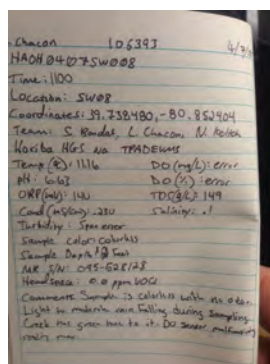 Chacon 106393 4/7/
HAOH0407SW008
Time: 1100
Location: SW08
Coordinates: 39.738480, -80.852404
Team: S. Bandas, L. Chacon, N.
Horiba HGS No
Temp (°C): 11.16 DO (mg/L): error
pH: 6.63 DO (%): error
ORP (mV): 140 TDS (g/L): 149
Cond (mS/cm): .230 Salinity: .1
Turbidity: Span error
Sample color: colorless
Sample Depth:
MR S/N: 095-528128
Headspace: 0.0 ppm VOCs
Comments: Sample is colorless with no odor.
Light to moderate rain falling during sampling
Creek has green hue to it. DO sensor malfunctioning